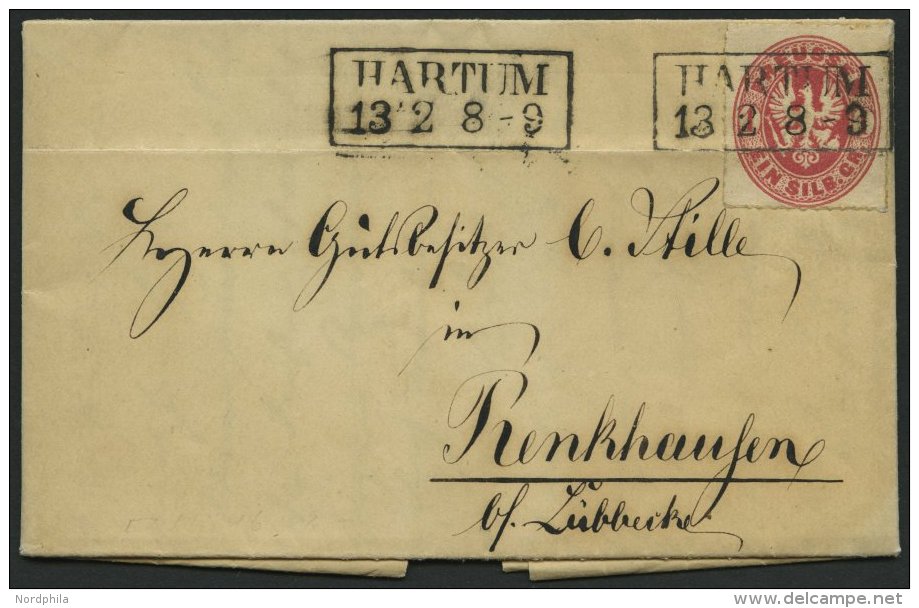 HARTUM
13 2 8-9
HARTUM
13 2 8-9
EIN SILB.GR.
Herrn Gutsbesitzer C. Stille
in
Renkhausen
bf. Lübbecke
Nordphila
delcampe.net